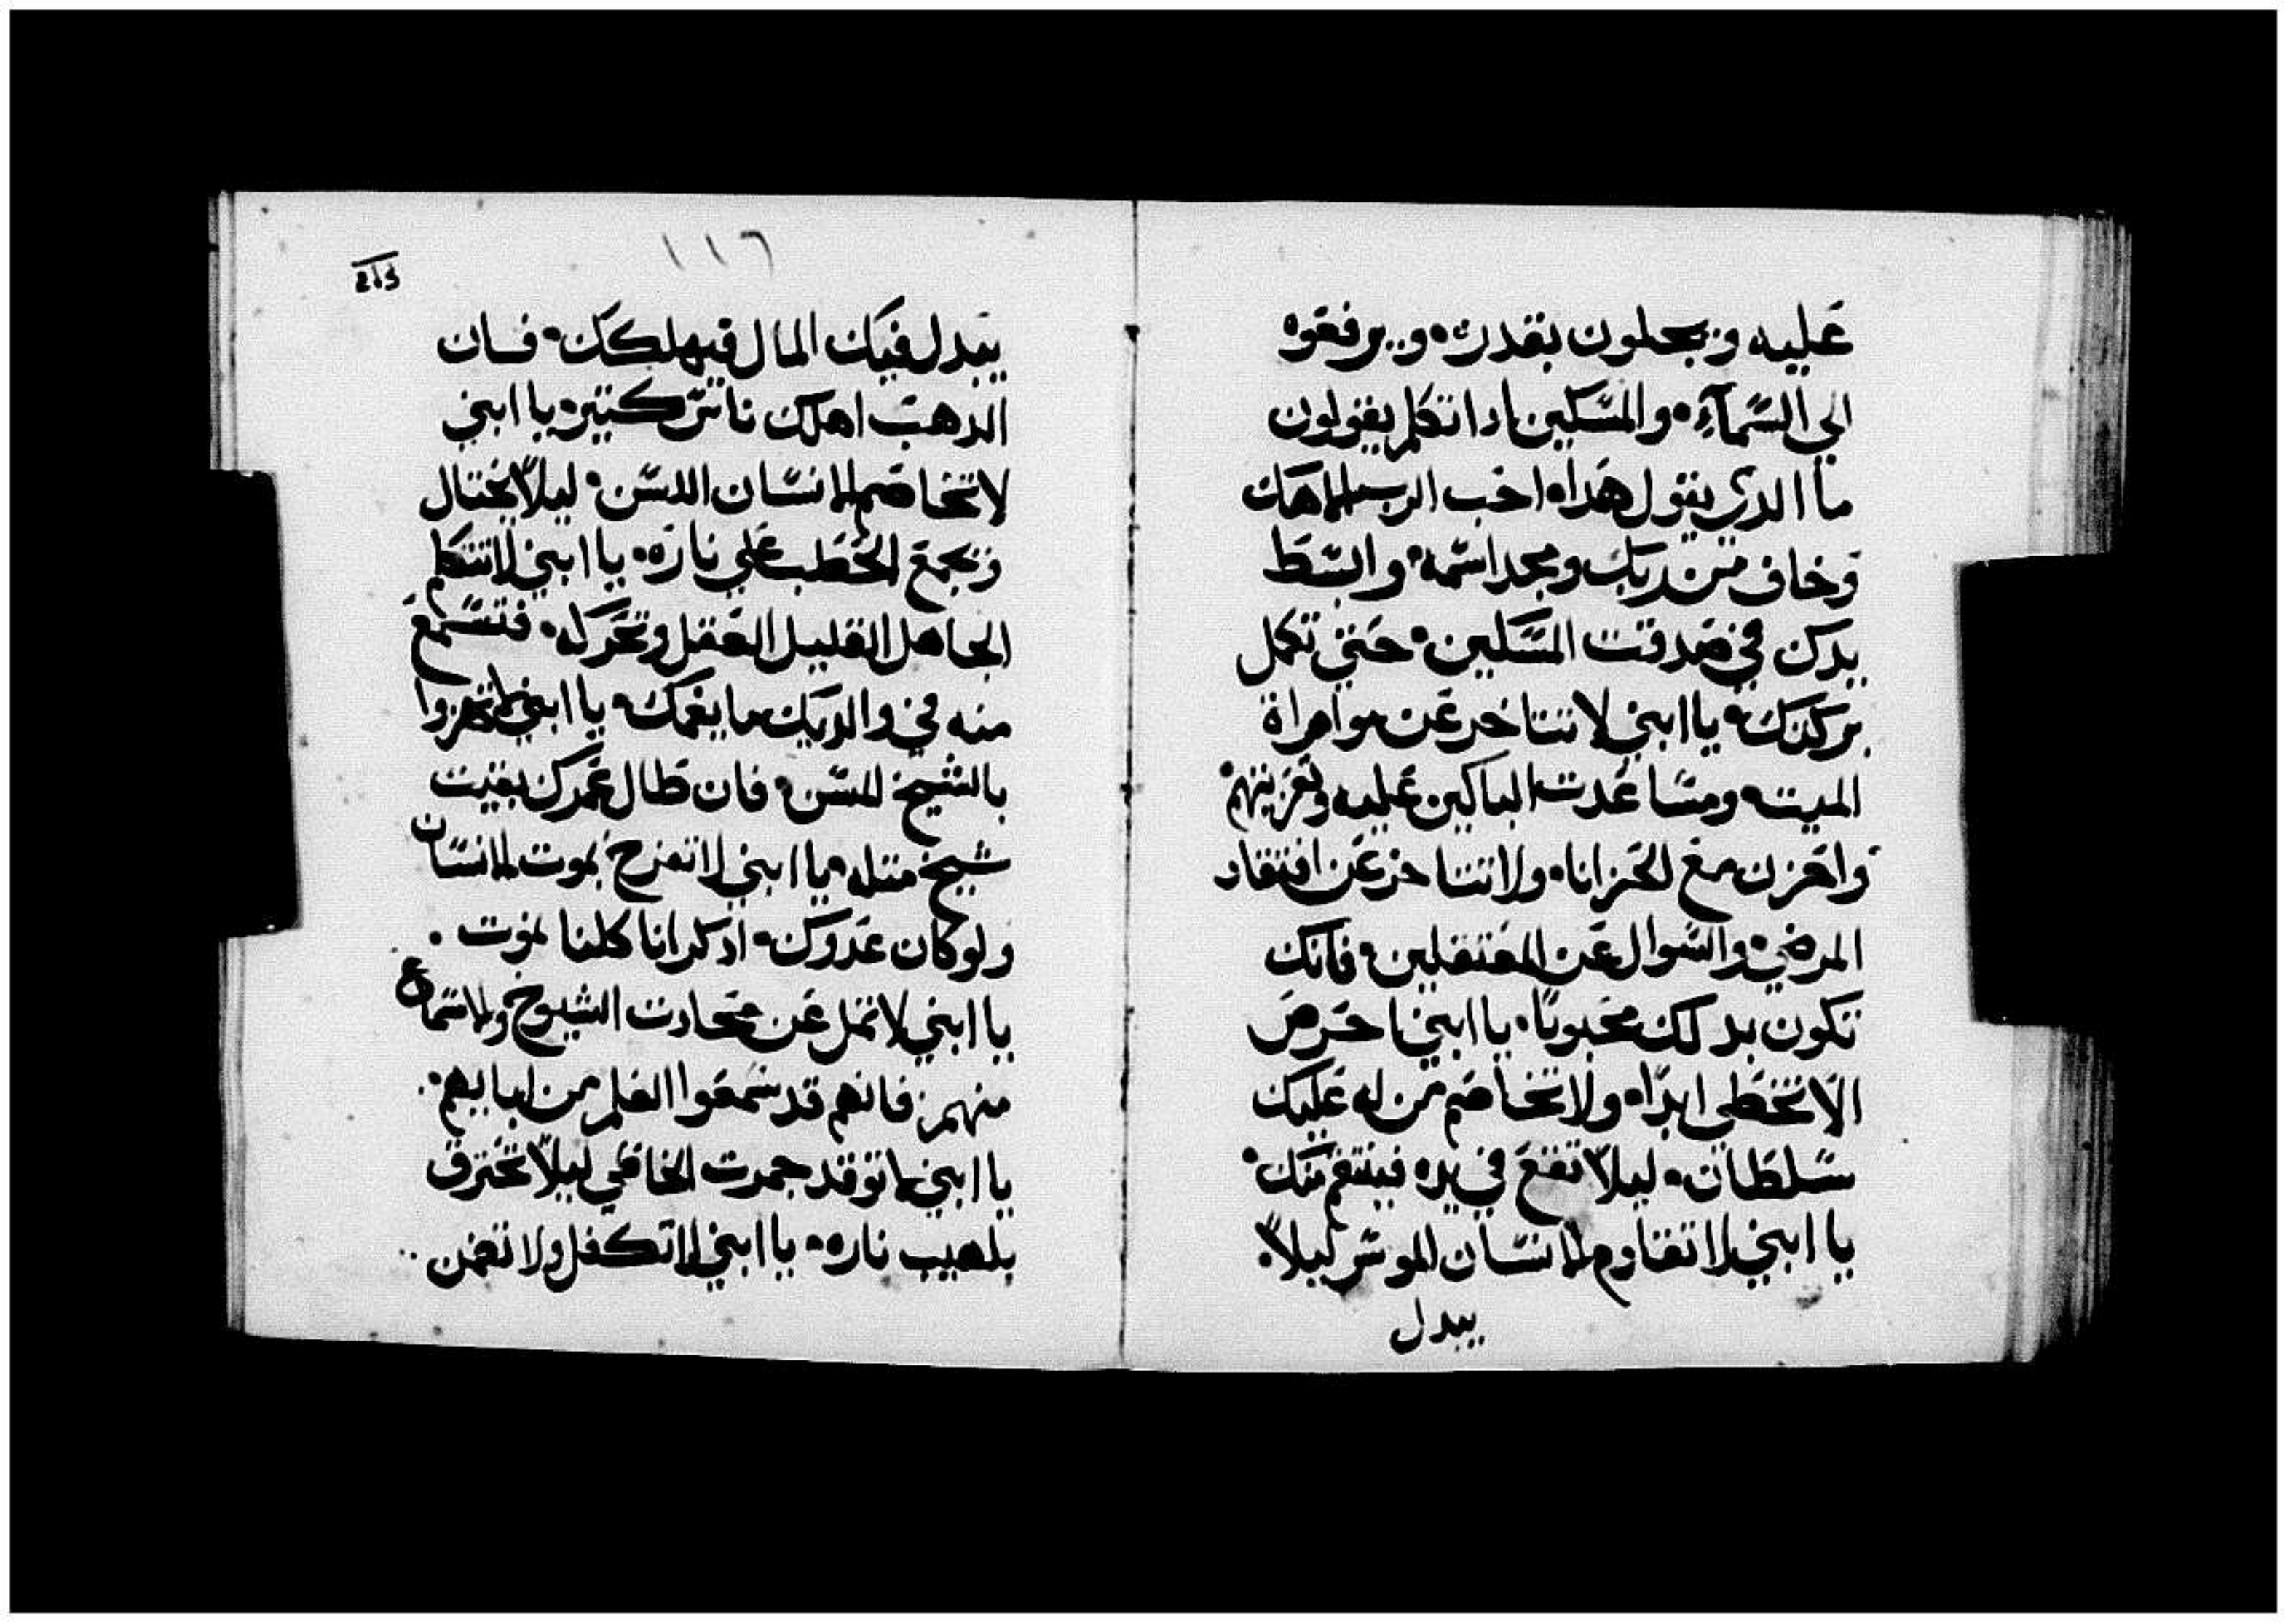 عليه ويجعلون بقدره۰ ويرفعوه
الي السّمآء۰ والمسّكين ادا تكلم يقولون
ما الدي يقول هدا۰ احب الرب الاهك
وخاف من ربك ومجد اسّمه۰ وابسّط
يدك في صدقت المسّكين۰ حتي تكمل
بركتك۰ يا ابني لا تتاخر عن مواراة
الميت۰ ومسّاعدت الباكين عليه وتعزيتهم۰
واحزن مع الحزانا۰ ولا تتاخر عن افتقاد
المرضي۰ والسّوال عن المعتقلين۰ فانك
تكون بدلك محبوبًا۰ يا ابني احرص
الّا تخطي ابدًا۰ ولا تخاصم من له عليك
سّلطان۰ ليلّا تقع في يده فينتقم منك۰
يا ابني لا تقاوم الانسّان الموسّر ليلًا
يبدل
١١٦
213
يبدل فيك المال فيهلكك۰ فان
الدهب اهلك ناسّ كتير۰ يا ابني
لا تخاصم الانسّان اللسّن۰ ليلًا يختال
ويجمع الحطب علي ناره۰ يا ابني لا تتكلم
الجاهل القليل العقل وتحركه۰ فتسّمع
منه في والديك ما يغمك۰ يا ابني لا تهزوا
بالشيخ المسّن۰ فان طال عمرك بقيت
شيخ متله۰ يا ابني لا تفرح بموت الانسّان
ولو كان عدوك۰ ادكر انا كلنا نموت۰
يا ابني لا تمل عن محادت الشيوخ والاسّماع
منهم۰ فانهم قد سّمعوا العلم من ابايهم۰
يا ابني لا توقد جمرت الخاطي ليلّا تحترق
بلهيب ناره۰ يا ابني لا تكفل ولا تضمن